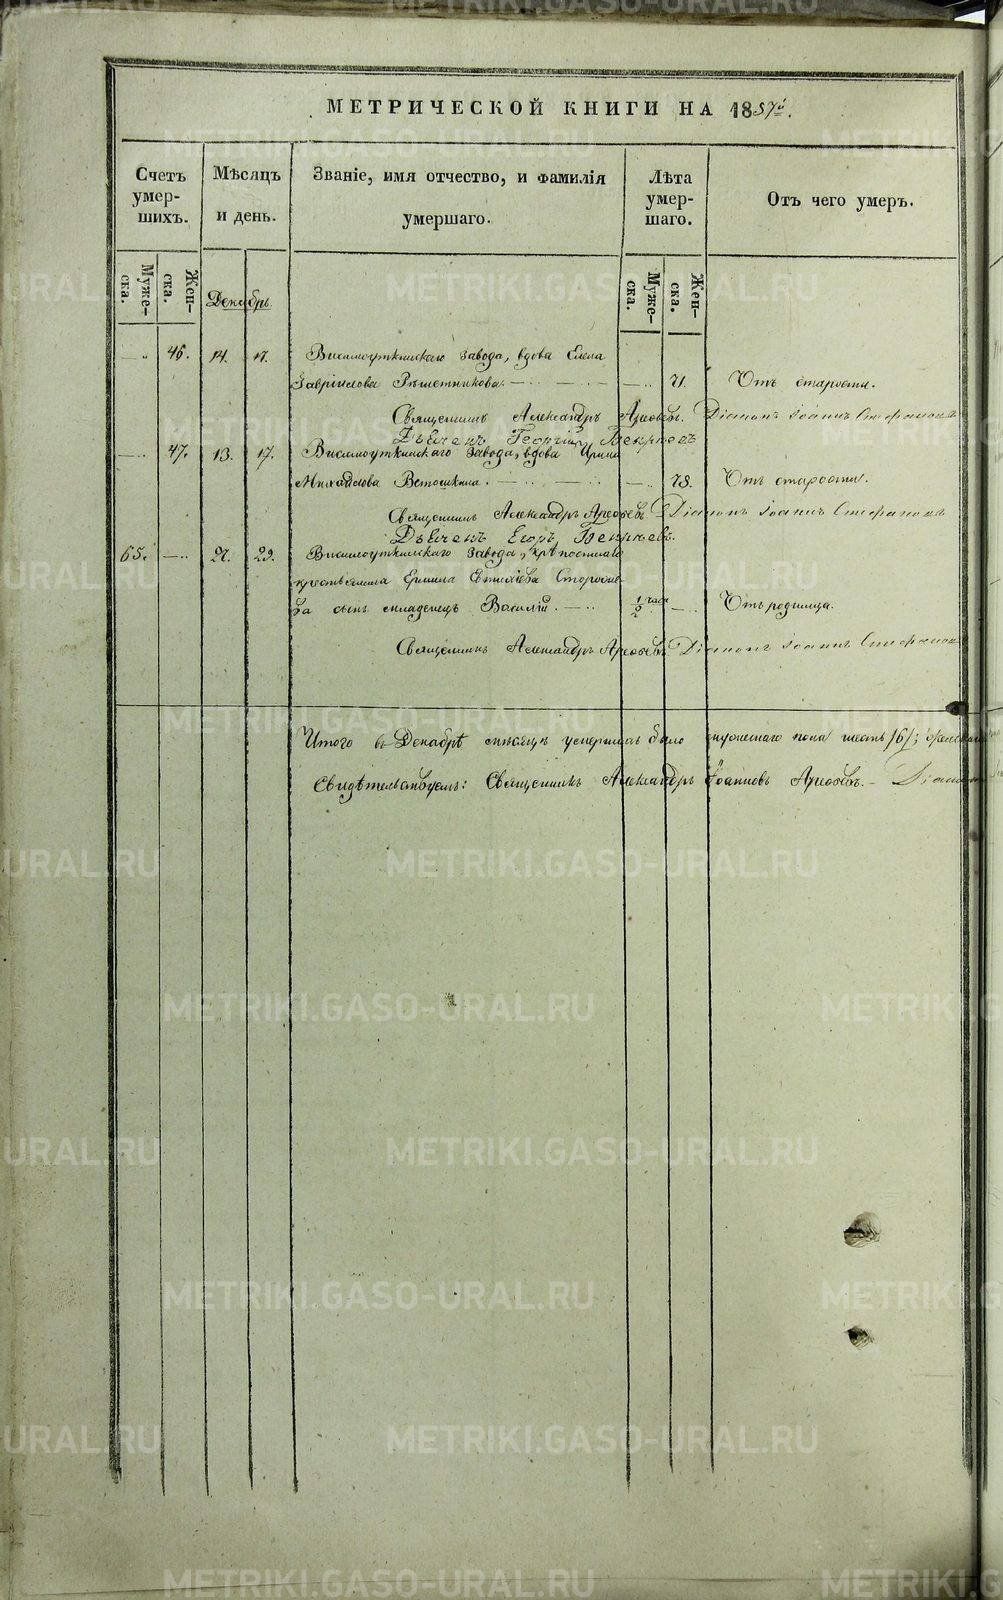 МЕТРИЧЕСКОЙ КНИГИ НА 1857й.
Счетъ умер-шихъ.
Мѣсяцъ и день.
Званіе, имя отчество, и фамилія умершаго.
Лѣта умер-шаго.
Отъ чего умеръ.
Муже-ска.
Жен-ска.
Муже-ска.
Жен-ска.
Декабрь.
46. 14. 17. Висимоуткинскаго завода, вдова Елена
Гавріилова Рѣшетникова. 71. Отъ старости.
Священникъ Александръ Діаконъ Іоаннъ Стефановъ
Дьячекъ Георгій
47. 13. 17. Висимоуткинскаго завода, вдова Ирина
Михайлова Ветошкина. 78. Отъ старости.
Священникъ Александръ Діаконъ Іоаннъ Стефановъ
Дьячекъ Егоръ
65. 21. 23. Висимоуткинскаго завода, крѣпостнаго
крестьянина Ермила
ва сынъ младенецъ Василій. 1/2 часа Отъ родимца.
Священникъ Александръ Діаконъ Іоаннъ Стефановъ
Итого въ Декабрѣ мѣсяцѣ умершихъ было мужескаго пола шесть /6/;
Свидѣтельствуемъ: Священникъ Александръ Іоанновъ
METRIKI.GASO-URAL.RU